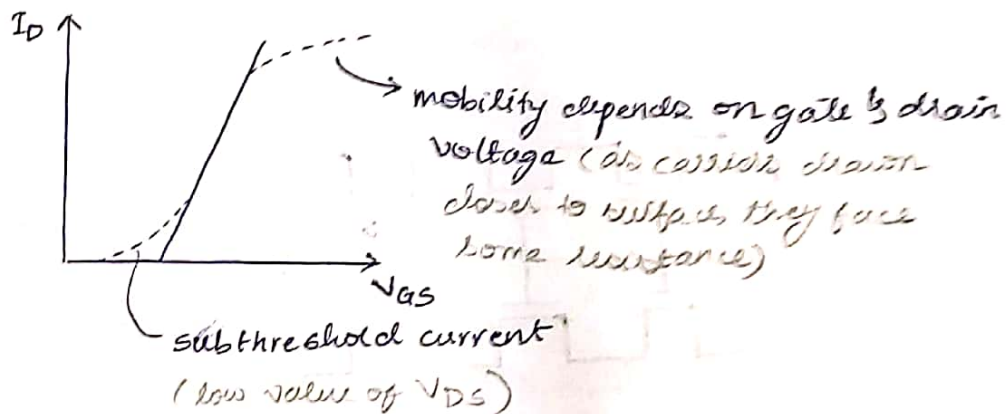 I_D
mobility depends on gate & drain
voltage (as carriers drawn
closer to surface, they face
some resistance)
V_GS
subthreshold current
(low value of V_DS)